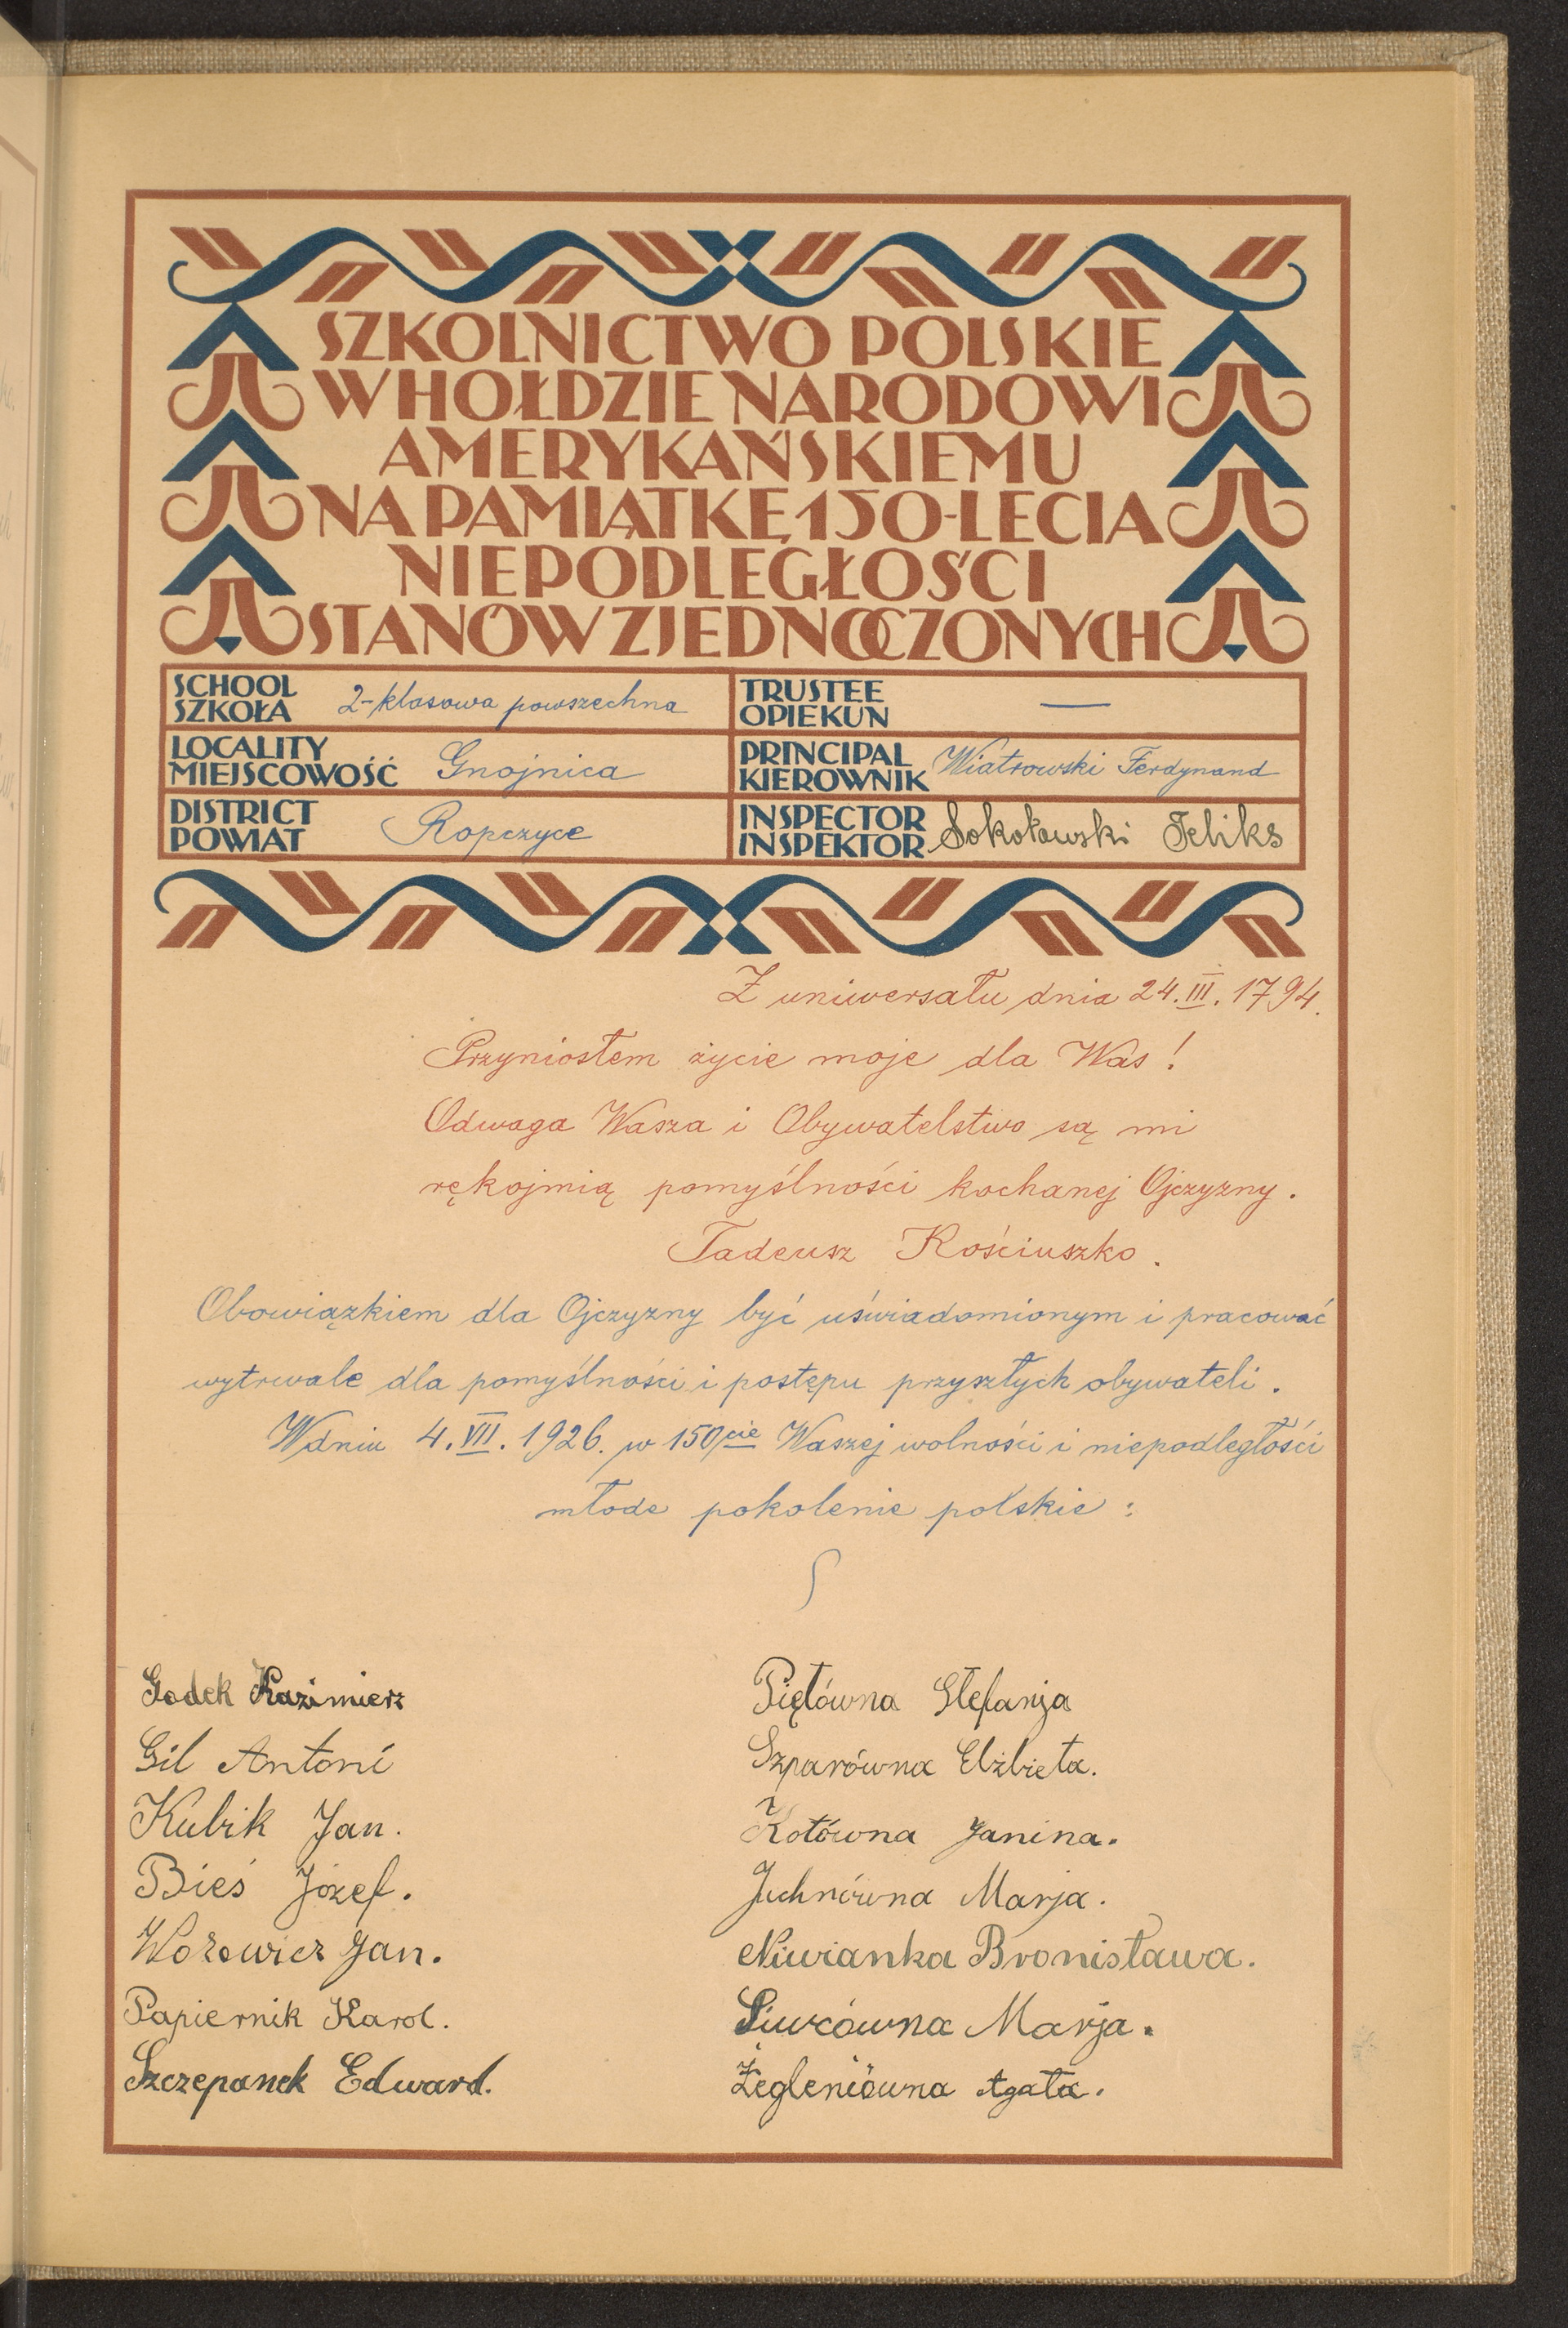 SZKOLNICTWO POLSKIE
W HOŁDZIE NARODOWI
AMERYKAŃSKIEMU
NA PAMIĄTKĘ 150-LECIA
NIEPODLEGŁOŚCI
STANÓW ZJEDNOCZONYCH
SCHOOL
SZKOŁA 2-klasowa powszechna
TRUSTEE
OPIEKUN —
LOCALITY
MIEJSCOWOŚĆ Gnojnica
PRINCIPAL
KIEROWNIK Wiatrowski Ferdynand
DISTRICT
POWIAT Ropczyce
INSPECTOR
INSPEKTOR Sokołowski Feliks
Z uniwersału dnia 24.III.1794.
Przyniosłem życie moje dla Was!
Odwaga Wasza i Obywatelstwo są mi
rękojmią pomyślności kochanej Ojczyzny.
Tadeusz Kościuszko.
Obowiązkiem dla Ojczyzny być uświadomionym i pracować
wytrwale dla pomyślności i postępu przyszłych obywateli.
W dniu 4.VII.1926. w 150cie Waszej wolności i niepodległości
młode pokolenie polskie:
Godek Kazimierz
Gil Antoni
Kubik Jan.
Bieś Józef.
Wożowicz Jan.
Papiernik Karol.
Szczepanek Edward.
Piętówna Stefanja
Szparówna Elżbieta.
Kotówna Janina.
Juchnówna Marja.
Niwianka Bronisława.
Siwcówna Marja.
Żegleniówna Agata.